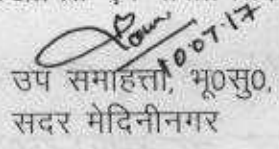 10.07.17
उप समाहर्त्ता, भू०सु०,
सदर मेदिनीनगर